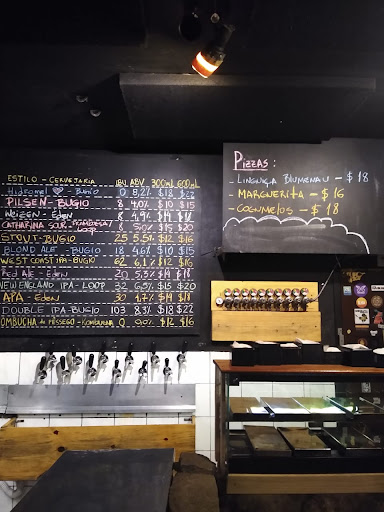 ESTILO - CERVEJARIA IBU ABV 300mL 600mL
Hidromel - Bugio 0 5,2% $18 $22
PILSEN - BUGIO 8 4.0% $10 $15
Weizen - Eden 8 4,9%
CATHARINA SOUR - LOOP 8 $15 $20
STOUT - BUGIO 25 5.5% $12 $16
BLOND ALE - BUGIO 18 4,6% $10 $15
WEST COAST IPA - BUGIO 62 6,1% $12 $16
Red Ale - Eden 20 5,3%
NEW ENGLAND IPA - LOOP 32 6,5% $15 $20
APA - Eden 30
DOUBLE IPA - BUGIO 103 8,3% $18 $22
KOMBUCHA de PÊSSEGO - 0 $12 $16
Pizzas:
- Linguiça Blumenau - $ 18
- Margherita - $ 16
- Cogumelos - $ 18